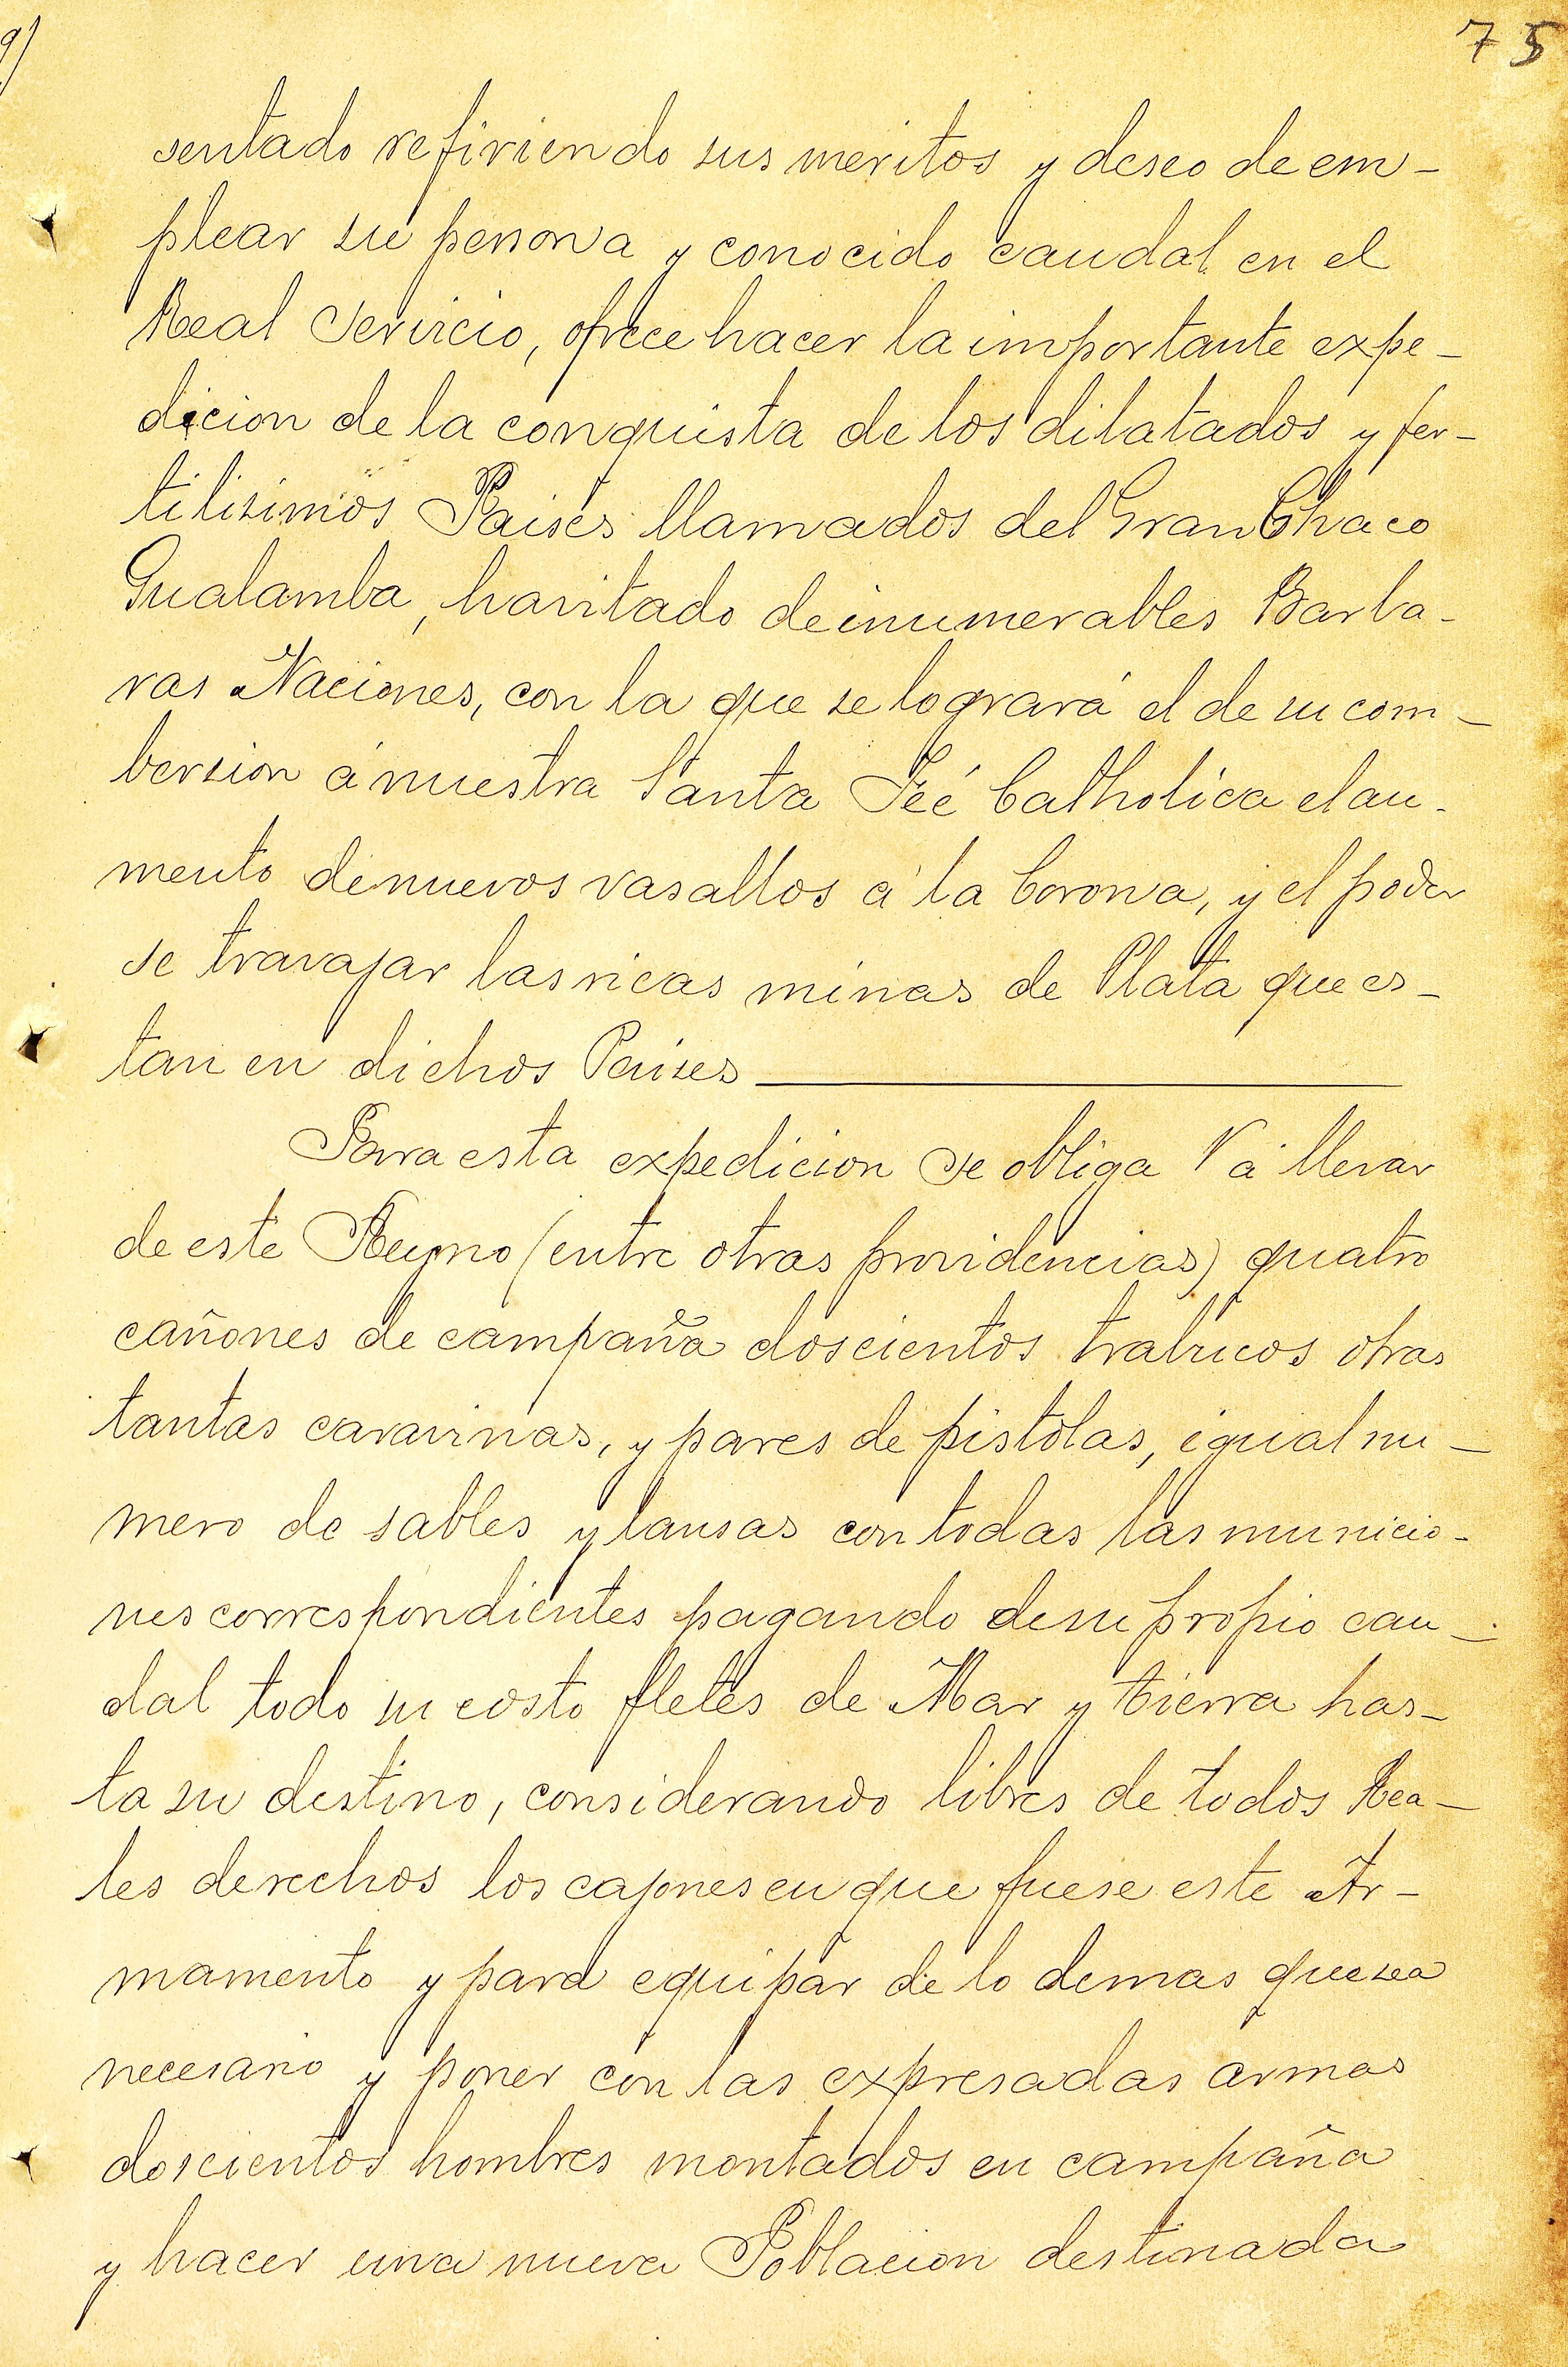 75
sentado refiriendo sus meritos y deseo de em-
plear su persona y conocido caudal en el
Real Servicio, ofrece hacer la importante expe-
dicion de la conquista de los dilatados y fer-
tilisimos Paises llamados del Gran Chaco
Gualamba, havitado de inumerables Barba-
ras Naciones, con la que se logrará el de su com-
bersion á nuestra Santa Feé Catholica el au-
mento de nuevos vasallos á la Corona, y el poder
se travajar las ricas minas de Plata que es-
tan en dichos Paises
Para esta expedicion se obliga V á llevar
de este Reyno (entre otras providencias) quatro
cañones de campaña doscientos trabucos otras
tantas caravinas, y pares de pistolas, igual nu-
mero de sables y lansas con todas las municio-
nes correspondientes pagando de su propio cau-
dal todo su costo fletes de Mar y tierra has-
ta su destino, considerando libres de todos Rea-
les derechos los cajones en que fuese este Ar-
mamento y para equipar de lo demas que sea
necesario y poner con las expresadas armas
doscientos hombres montados en campaña
y hacer una nueva Poblacion destinada